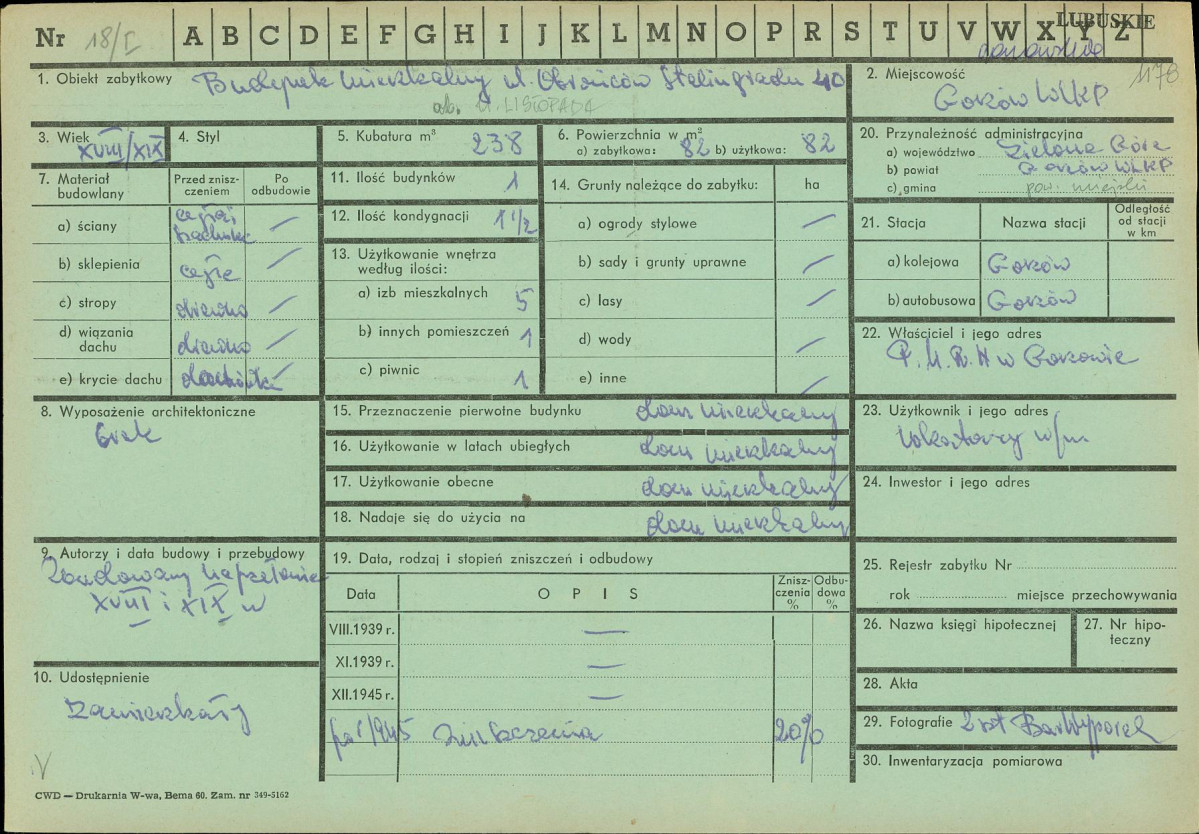 LUBUSKIE
Nr 18/I A B C D E F G H I J K L M N O P R S T U V W X Y Z
1178
1. Obiekt zabytkowy Budynek mieszkalny ul. Obrońców Stalingradu 40
ob. 11 LISTOPADA
2. Miejscowość
Gorzów WLKP
3. Wiek
XVIII/XIX
4. Styl
5. Kubatura m³ 238
6. Powierzchnia w m²
a) zabytkowa: 82 b) użytkowa: 82
20. Przynależność administracyjna
a) województwo Zielona Góra
b) powiat Gorzów WLKP
c) gmina pow. miejski
7. Materiał budowlany
Przed zniszczeniem
Po odbudowie
a) ściany cegła —
b) sklepienia cegła —
c) stropy drewno —
d) wiązania dachu drewno —
e) krycie dachu dachówka —
11. Ilość budynków 1
12. Ilość kondygnacji 1 1/2
13. Użytkowanie wnętrza według ilości:
a) izb mieszkalnych 5
b) innych pomieszczeń 1
c) piwnic 1
14. Grunty należące do zabytku: ha
a) ogrody stylowe —
b) sady i grunty uprawne —
c) lasy —
d) wody —
e) inne —
21. Stacja
Nazwa stacji
Odległość od stacji w km
a) kolejowa Gorzów
b) autobusowa Gorzów
22. Właściciel i jego adres
P.M.R.N w Gorzowie
8. Wyposażenie architektoniczne
brak
15. Przeznaczenie pierwotne budynku dom mieszkalny
16. Użytkowanie w latach ubiegłych dom mieszkalny
17. Użytkowanie obecne dom mieszkalny
18. Nadaje się do użycia na dom mieszkalny
23. Użytkownik i jego adres
lokatorzy w/m
24. Inwestor i jego adres
9. Autorzy i data budowy i przebudowy
Zbudowany na przełomie
XVIII i XIX w
19. Data, rodzaj i stopień zniszczeń i odbudowy
Data
OPIS
Zniszczenia %
Odbudowa %
VIII.1939 r. —
XI.1939 r. —
XII.1945 r. —
po r/1945 zniszczenia 20%
25. Rejestr zabytku Nr
rok miejsce przechowywania
26. Nazwa księgi hipotecznej
27. Nr hipoteczny
10. Udostępnienie
zamieszkały
28. Akta
29. Fotografie 2 szt
30. Inwentaryzacja pomiarowa
V
CWD — Drukarnia W-wa, Bema 60. Zam. nr 349-5162